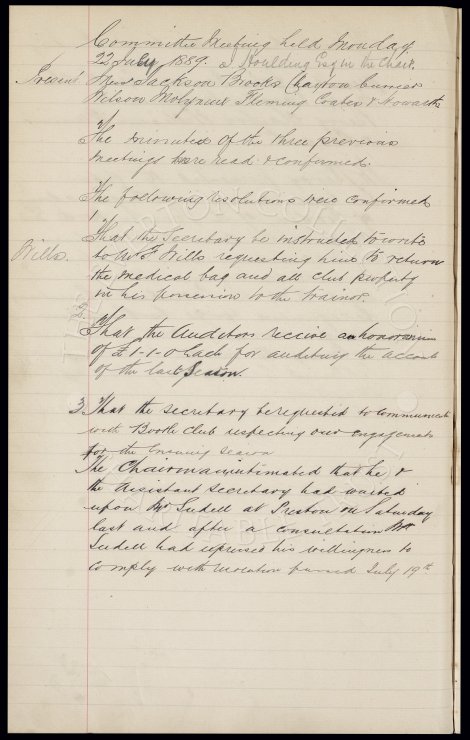 Committee Meeting held Monday
22 July 1889. J Houlding Esq in the Chair.
Present Messrs Jackson Brooks Clayton
Wilson Molyneux Fleming Coates & Howarth
The minutes of the three previous
meetings were read & confirmed.
The following resolutions were confirmed
1 That the Secretary be instructed to write
Wills. to W Wills requesting him to return
the medical bag and all club property
in his possession to the trainor.
2 That the Auditors receive an honorarium
of £1-1-0 Each for auditing the accounts
of the last Season.
3. That the secretary be requested to communicate
with Bootle Club respecting our engagements
for the Ensuing season
The Chairman intimated that he &
the assistant secretary had waited
upon Mr Sudell at Preston on Saturday
last and after a consultation Mr
Sudell had expressed his willingness to
comply with resolution passed July 19th